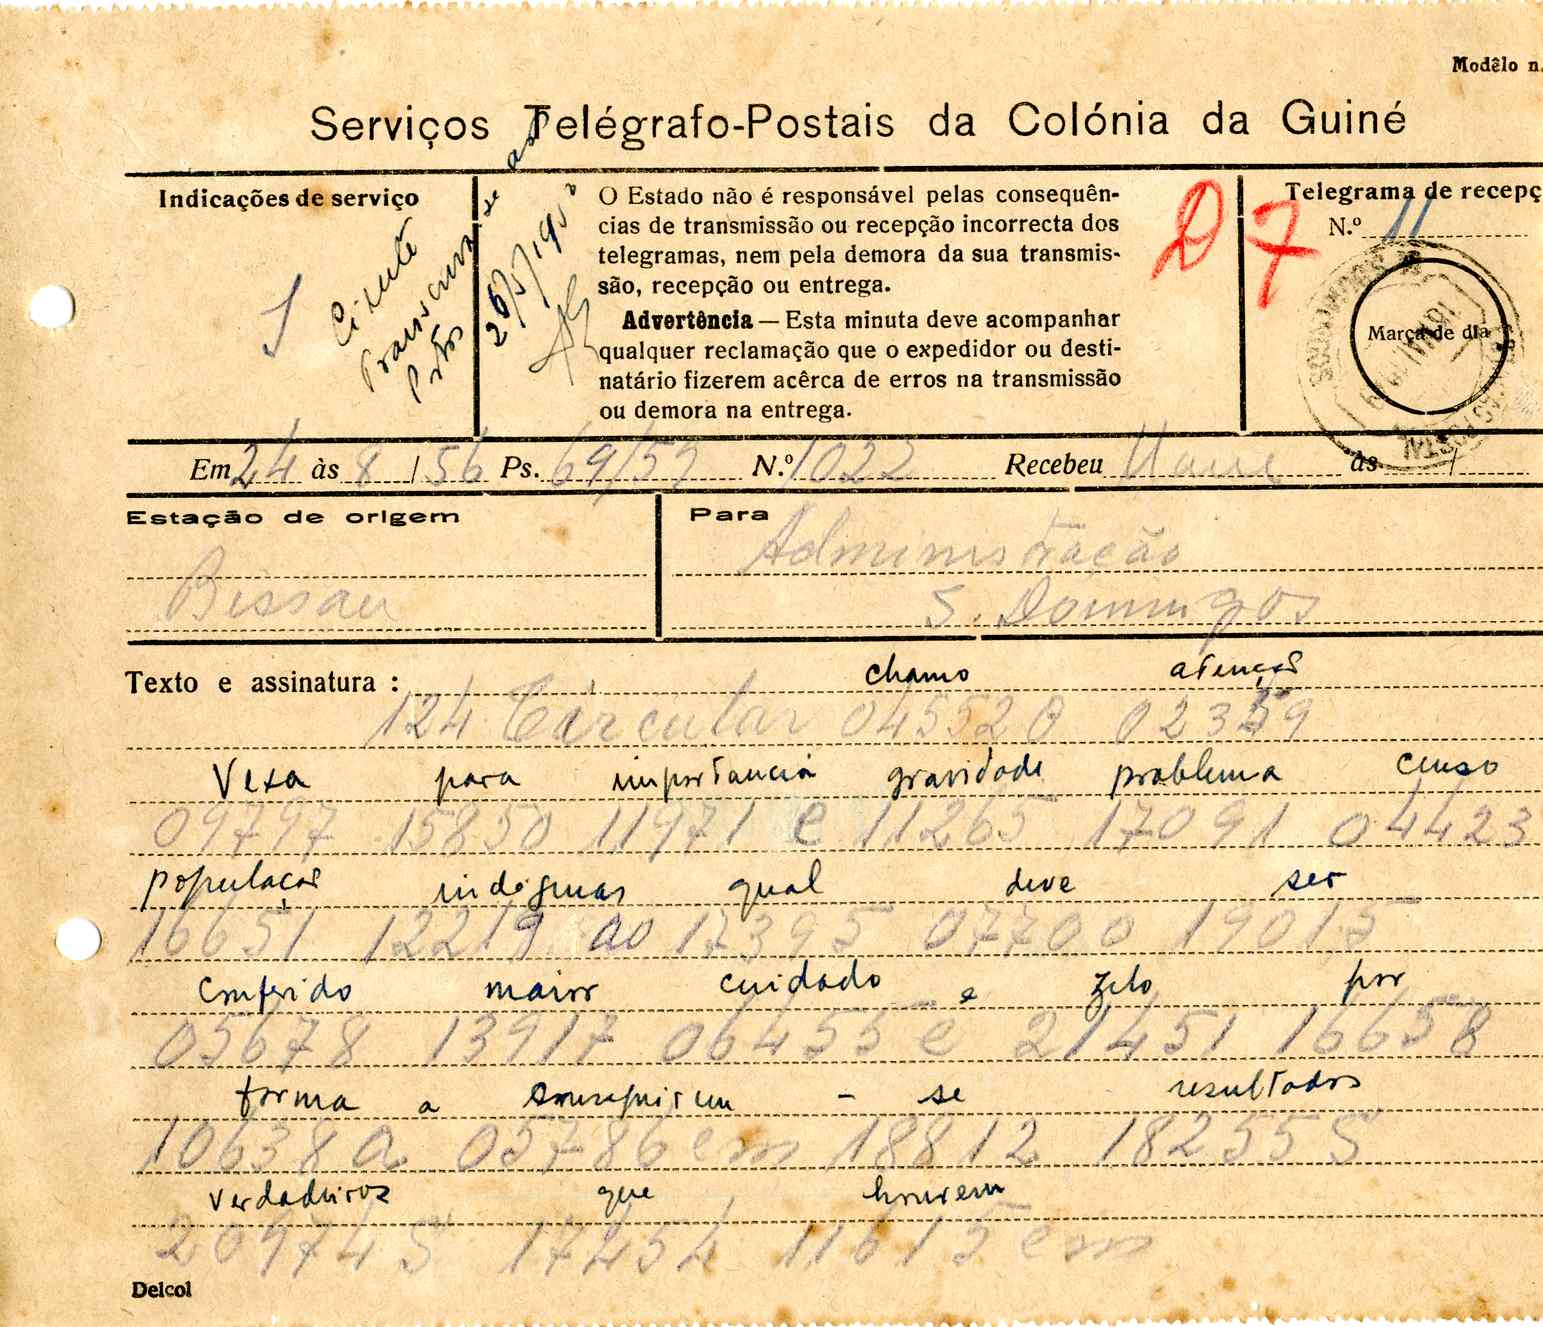 Modêlo n.
Serviços Telégrafo-Postais da Colónia da Guiné
Indicações de serviço
Ciente
O Estado não é responsável pelas consequên-
cias de transmissão ou recepção incorrecta dos
telegramas, nem pela demora da sua transmis-
são, recepção ou entrega.
Advertência — Esta minuta deve acompanhar
qualquer reclamação que o expedidor ou desti-
natário fizerem acêrca de erros na transmissão
ou demora na entrega.
D 7
Telegrama de recepç
N.º 11
Marca de dia
Em 24 às 8 / 56 Ps. 69/59 N.º 1022 Recebeu às /
Estação de origem
Bissau
Para
Administração
S. Domingos
Texto e assinatura :
chamo atenção
124 Circular 04552 0 02359
Vexa para importancia gravidade problema censo
09797 15850 11971 e 11265 17091 04423
população indigenas qual deve ser
16651 12219 ao 17395 07700 19015
conferido maior cuidado e zelo por
05678 13917 06455 e 21451 16658
forma a conseguirem - se resultados
10638 a 05786 em 18812 18255 S
verdadeiros que honrem
20974 S 17454 11615 em
Delcol